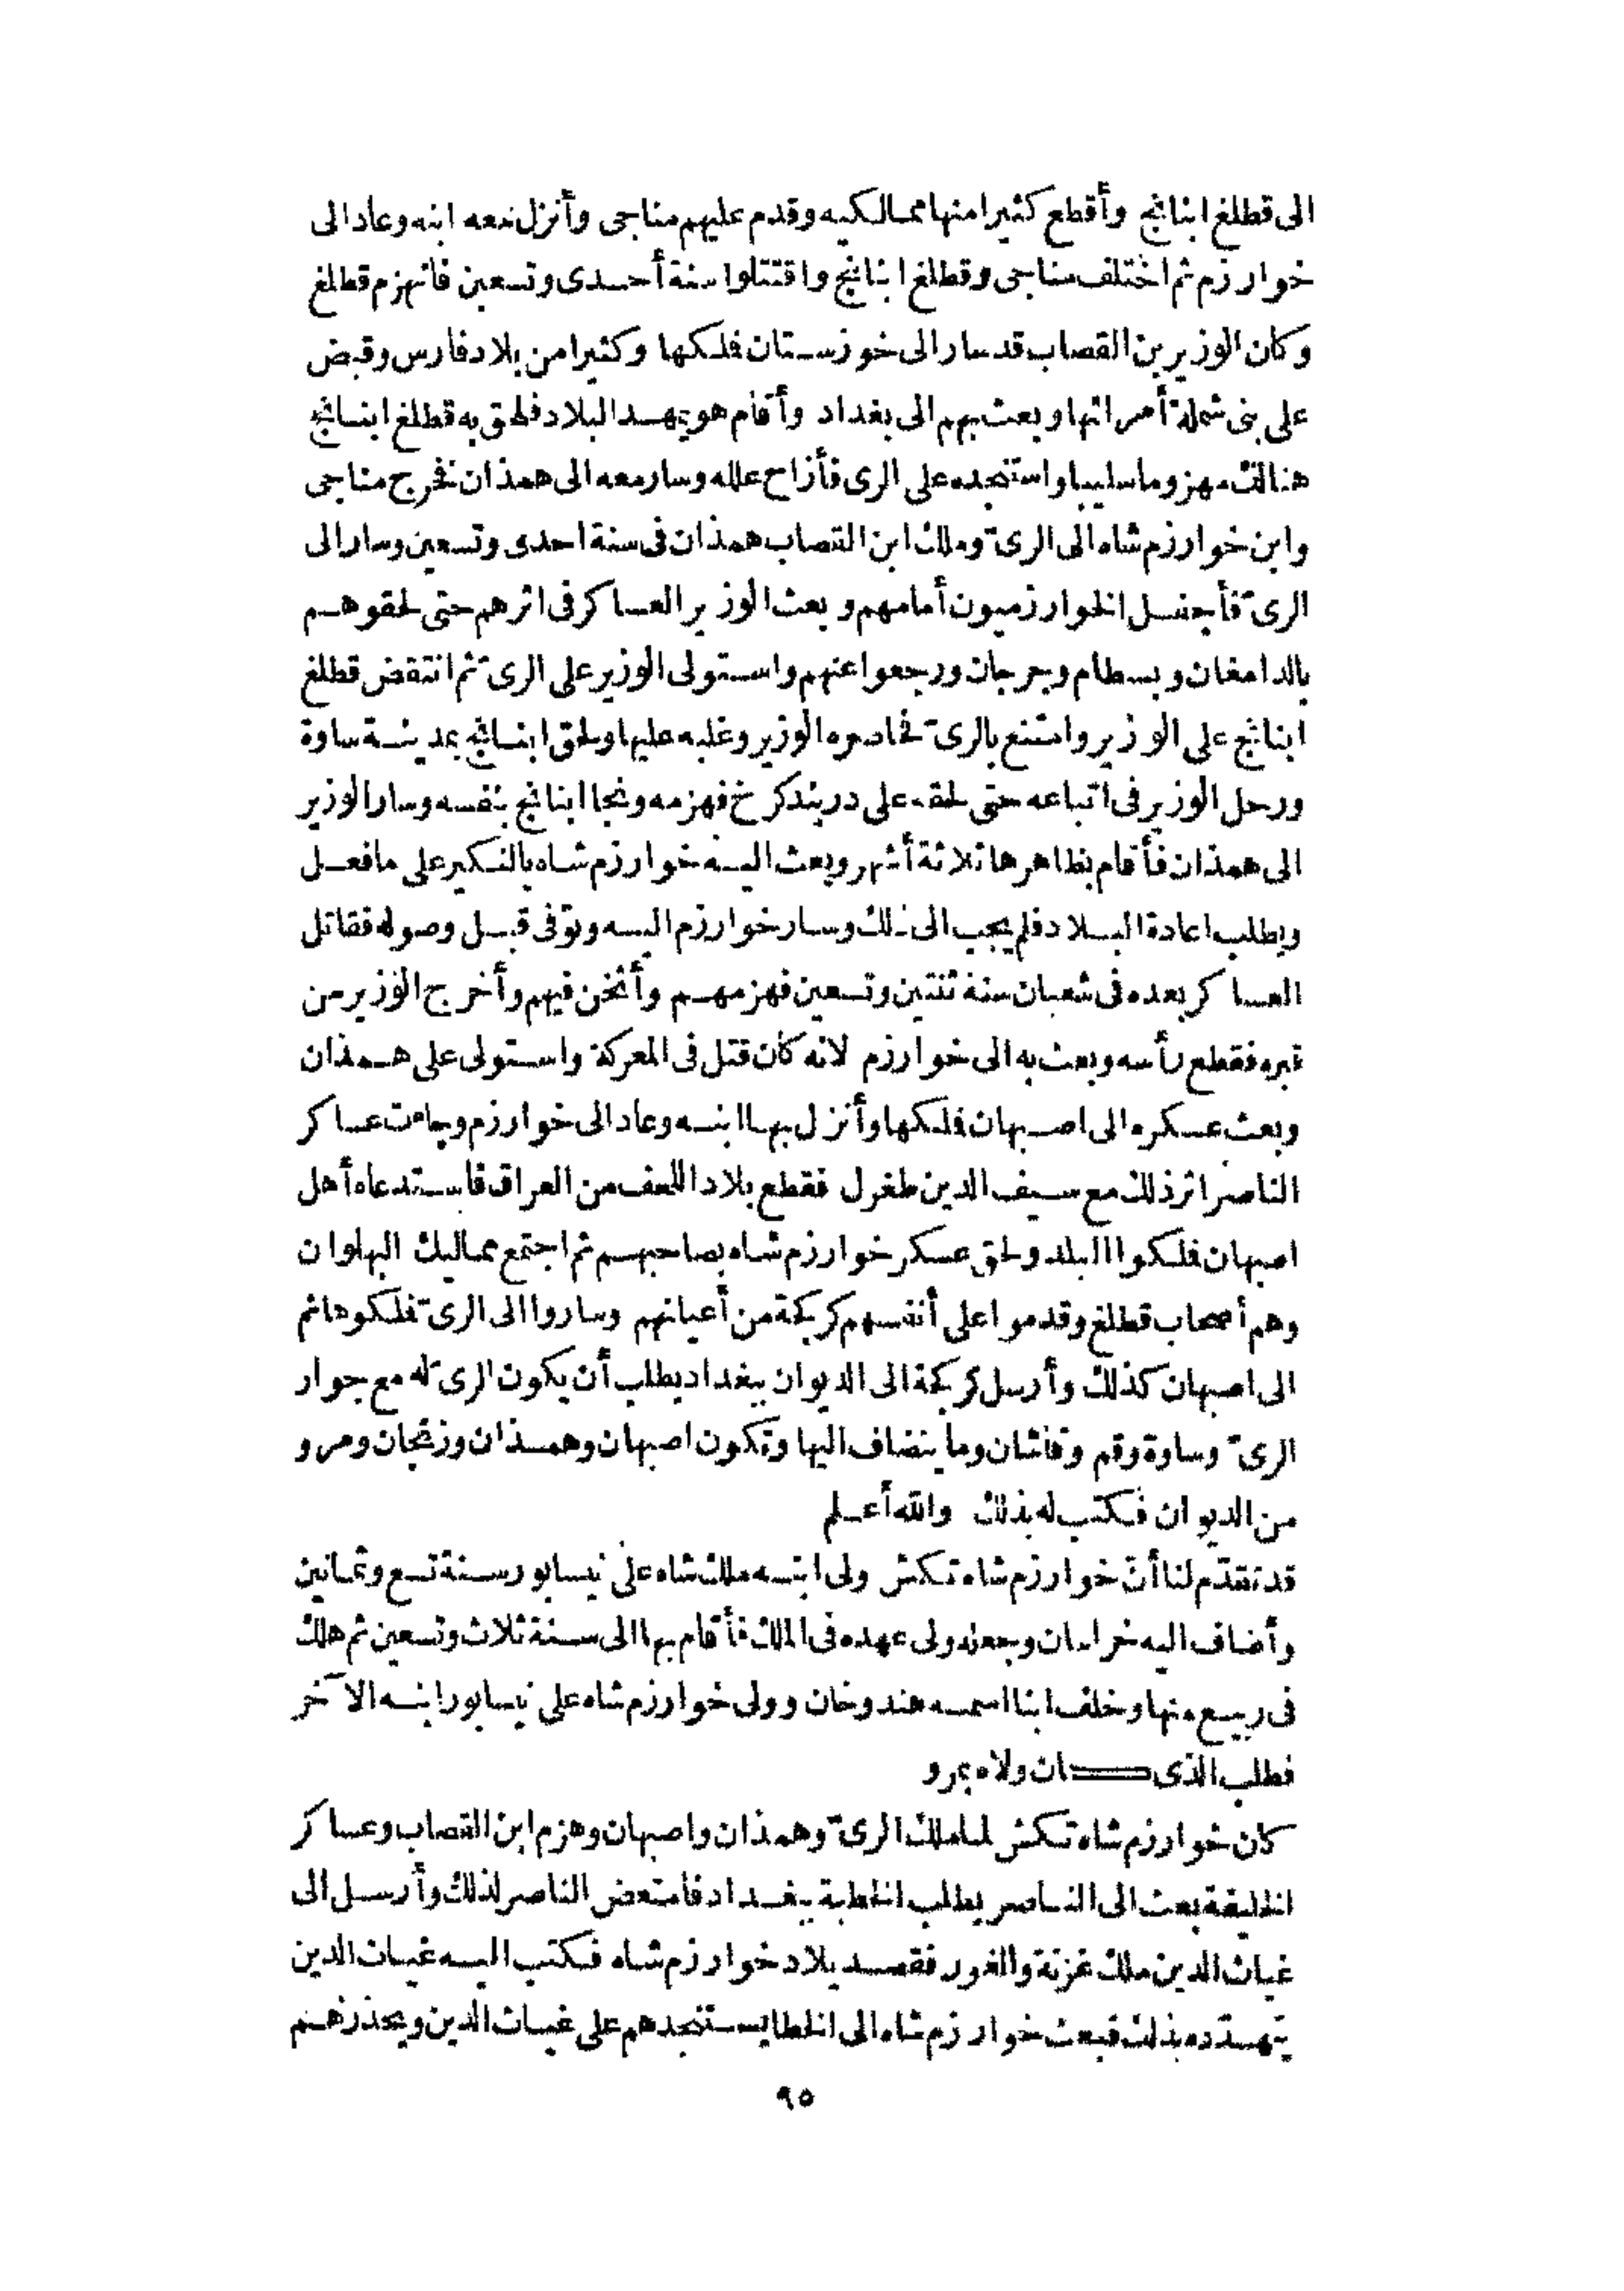 الى قطلغ ابنانج وأقطع كثيرا منها مماليكه وقدم عليهم مناجى وأنزل معه ابنه وعاد الى
خوارزم ثم اختلف مناجى وقطلغ ابنانج واقتتلوا سنة أحدى وتسعين فانهزم قطلغ
وكان الوزير بن القصاب قد سار الى خوزستان فلكها وكثيرا من بلاد فارس وقبض
على بنى شملة أمرائها وبعث بهم الى بغداد وأقام هو يمهد البلاد فلحق به قطلغ ابنانج
هنالك مهزوما سليبا واستنجده على الرى فأزاح علله وسار معه الى همذان فخرج مناجى
وابن خوارزم شاه الى الرىّ وملك ابن القصاب همذان فى سنة احدى وتسعين وسار الى
الرىّ فأجفل الخوارزميون أمامهم وبعث الوزير العساكر فى اثرهم حتى لحقوهم
بالدامغان وبسطام وجرجان ورجعوا عنهم واستولى الوزير على الرىّ ثم انتقض قطلغ
ابنانج على الوزير وامتنع بالرىّ فحاصره الوزير وغلبه عليها ولحق ابنانج بمدينة ساوة
ورحل الوزير فى اتباعه حتى لحقه على دربند كرخ فهزمه ونجا ابنانج بنفسه وسار الوزير
الى همذان فأقام بظاهرها ثلاثة أشهر وبعث اليه خوارزم شاه بالنكير على ما فعل
ويطلب اعادة البلاد فلم يجب الى ذلك وسار خوارزم اليه وتوفى قبل وصوله فقاتل
العساكر بعده فى شعبان سنة ثنتين وتسعين فهزمهم وأثخن فيهم وأخرج الوزير من
قبره فقطع رأسه وبعث به الى خوارزم لانه كان قتل فى المعركة واستولى على همذان
وبعث عسكره الى اصبهان فلكها وأنزل بها ابنه وعاد الى خوارزم وجاءت عساكر
الناصر اثر ذلك مع سيف الدين طغرل فقطع بلاد اللحف من العراق فاستدعاه أهل
اصبهان فلكوا البلد ولحق عسكر خوارزم شاه بصاحبهم ثم اجتمع مماليك البهلوان
وهم أصحاب قطلغ وقدموا على أنفسهم كركجة من أعيانهم وساروا الى الرىّ فلكوها ثم
الى اصبهان كذلك وأرسل كركجة الى الديوان ببغداد يطلب أن يكون الرىّ له مع جوار
الرىّ وساوة وقم وقاشان وما ينضاف اليها وتكون اصبهان وهمذان وزنجان ومرو
من الديوان فكتب له بذلك والله أعلم
قد تقدّم لنا أنّ خوارزم شاه تكش ولى ابنه ملك شاه على نيسابور سنة تسع وثمانين
وأضاف اليه خراسان وجعله ولى عهده فى الملك فأقام بها الى سنة ثلاث وتسعين ثم هلك
فى ربيع منها وخلف ابنا اسمه هندوخان وولى خوارزم شاه على نيسابور ابنه الآخر
فطلب الذى كان ولاه بمرو
كان خوارزم شاه تكش لما ملك الرىّ وهمذان واصبهان وهزم ابن القصاب وعساكر
الخليفة بعث الى الناصر يطلب الخطبة ببغداد فامتعض الناصر لذلك وأرسل الى
غياث الدين ملك غزنة والغور فقصد بلاد خوارزم شاه فكتب اليه غياث الدين
يتهدّده بذلك فبعث خوارزم شاه الى الخطا يستنجدهم على غياث الدين ويحذرهم
٩٥